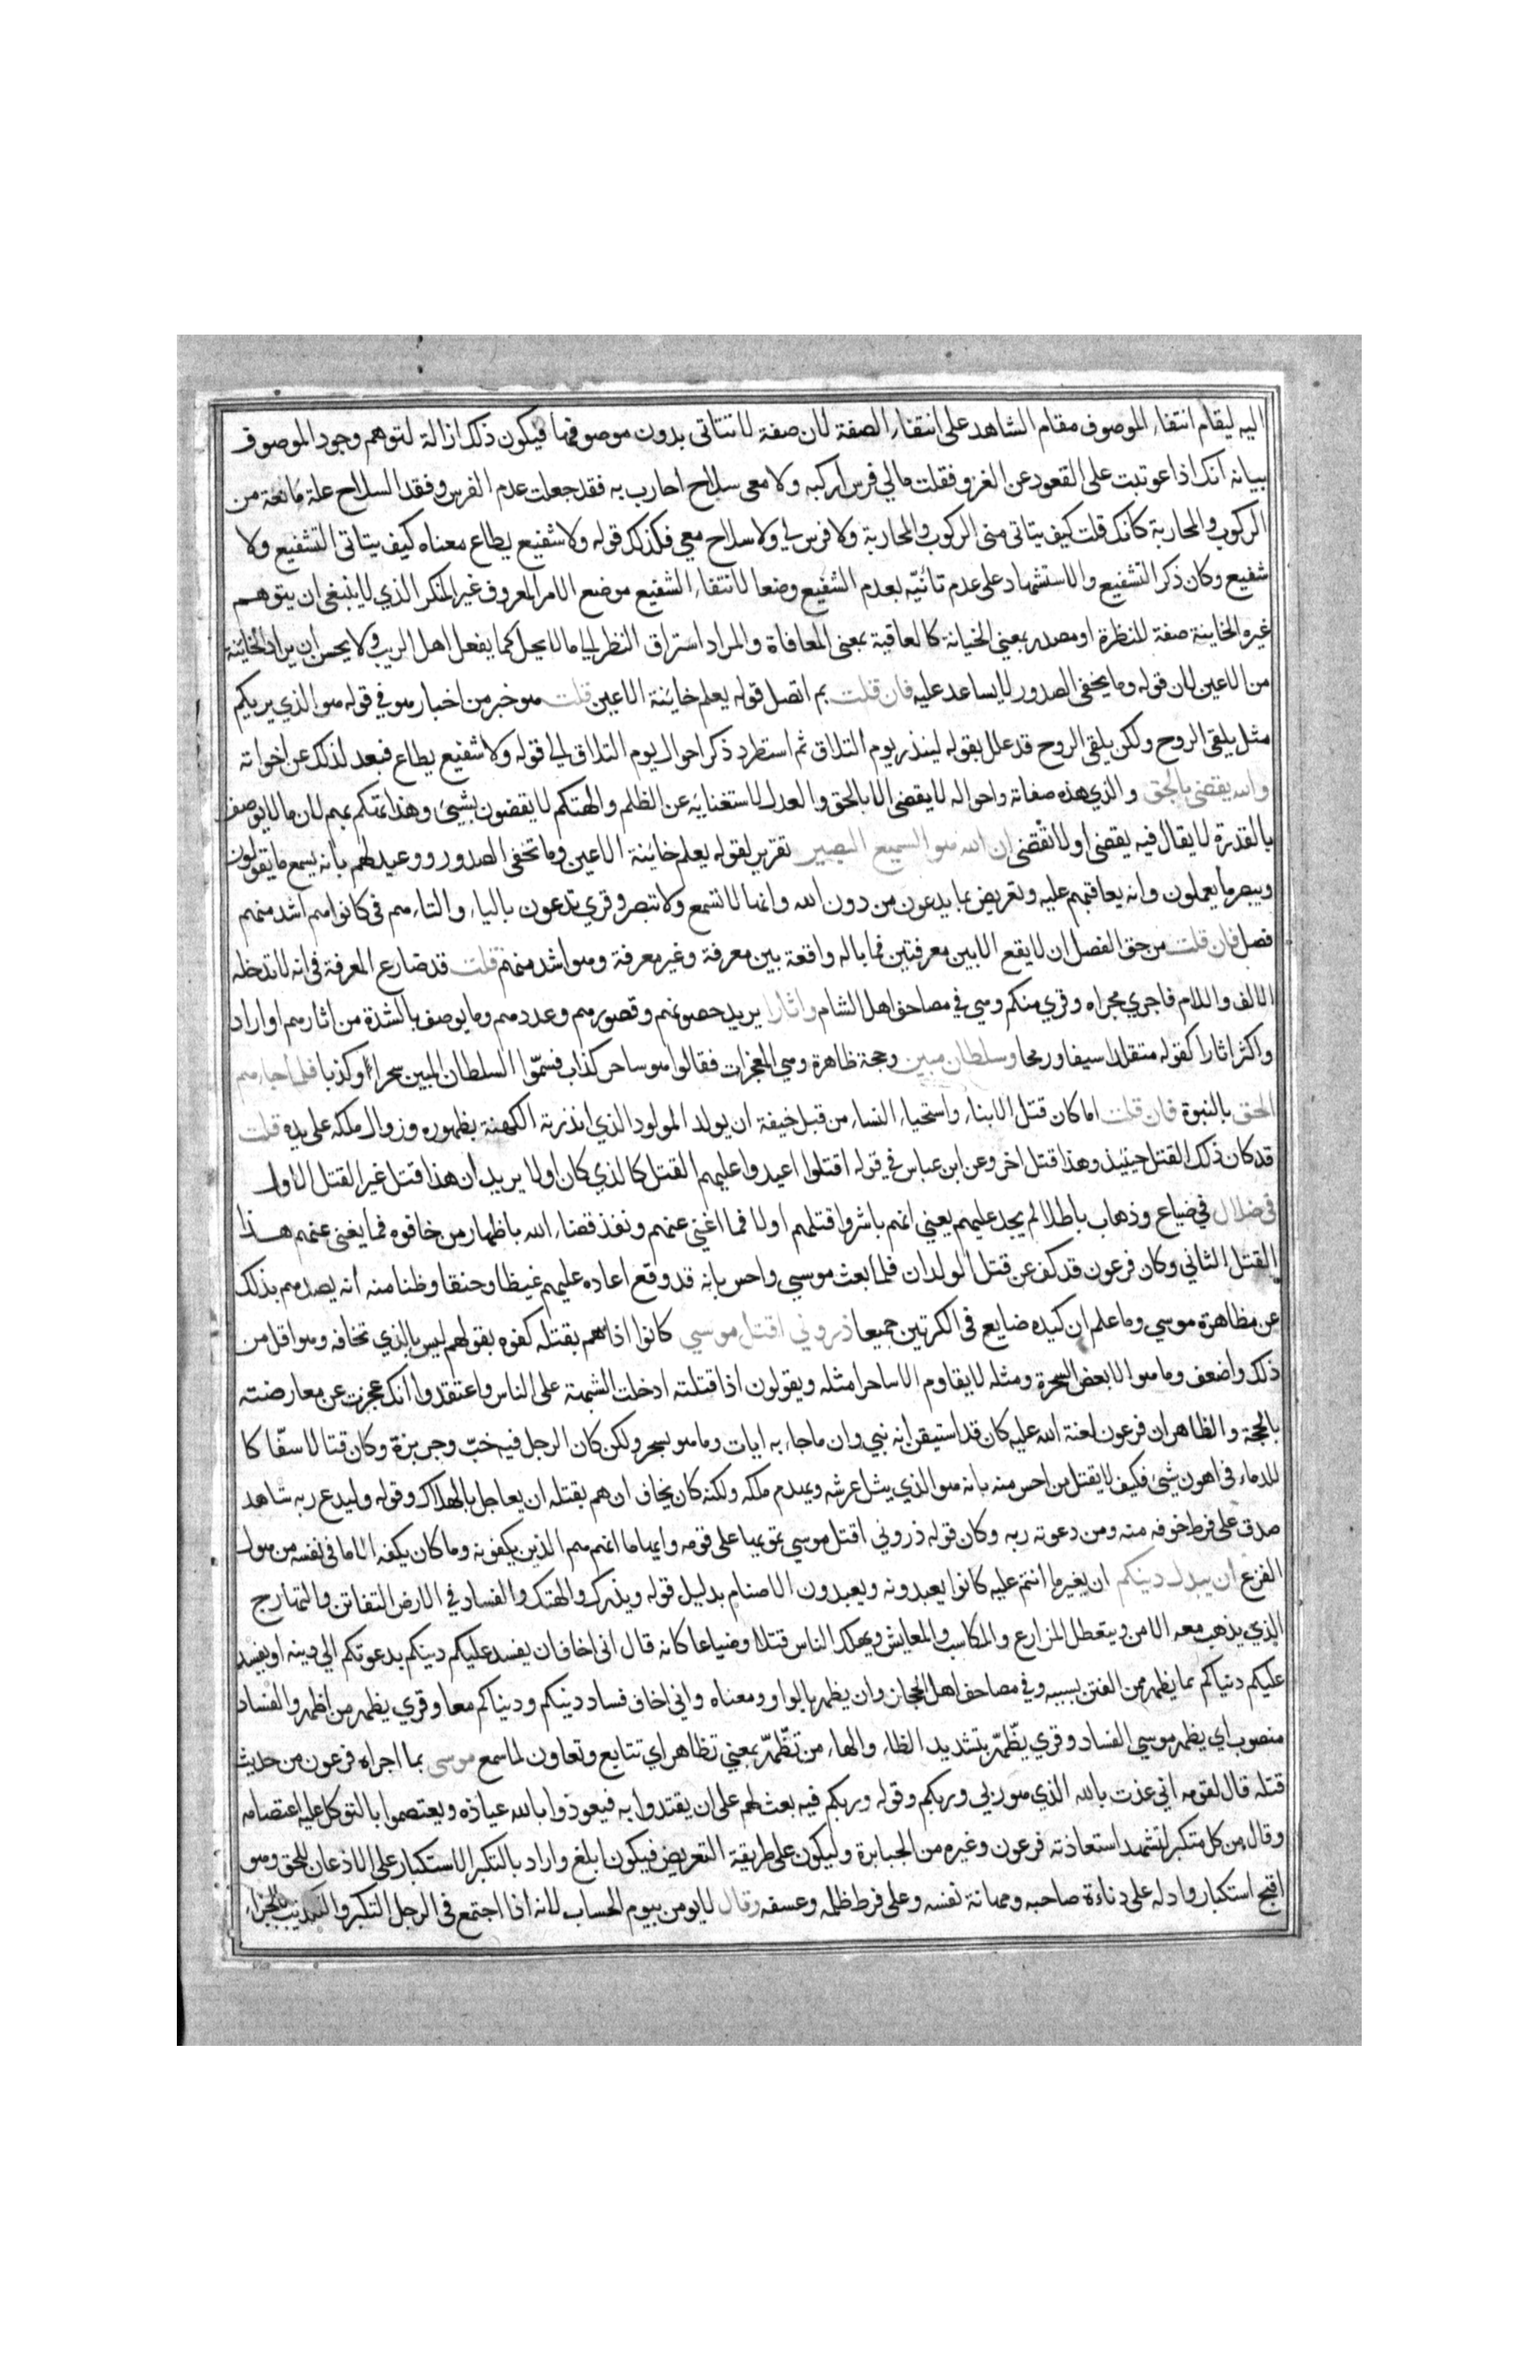 اليه ليقام انتفاء الموصوف مقام الشاهد على انتفاء الصفة لان صفة لا تتاتى بدون موصوفها فيكون ذلك ازالة لتوهم وجود الموصوف
بيانه انك اذا عوتبت على القعود عن الغزو فقلت مالي فرس اركبه ولا معي سلاح احارب به فقد جعلت عدم الفرس وفقد السلاح علة مانعة من
الركوب والمحاربة كانك قلت كيف يتاتى منى الركوب والمحاربة ولا فرس لي ولا سلاح معي فكذلك قوله ولا شفيع يطاع معناه كيف يتاتى التشفيع ولا
شفيع وكان ذكر التشفيع والاستشهاد على عدم تاتيه بعدم الشفيع وضعا لانتفاء الشفيع موضع الامر المعروف غير المنكر الذي لا ينبغى ان يتوهم
غيره الخاينة صفة للنظرة او مصدر بمعنى الخيانة كالعاقبة بمعنى المعافاة والمراد استراق النظر الى ما لا يحل كما يفعل اهل الريب ولا يحسن ان يراد الخاينة
من الاعين لان قوله وما يخفى الصدور لا يساعد عليه فان قلت بم اتصل قوله يعلم خاينة الاعين قلت هو خبر من اخبار هو في قوله هو الذي يريكم
مثل يلقى الروح ولكن يلقى الروح قد علل بقوله لينذر يوم التلاق ثم استطرد ذكر احوال يوم التلاق الى قوله ولا شفيع يطاع فبعد لذلك عن اخواته
والله يقضى بالحق والذي هذه صفاته واحواله لا يقضى الا بالحق والعدل لاستغنائه عن الظلم والهتكم لا يقضون بشيئ وهذا تهكم بهم لان ما لا يوصف
بالقدرة لا يقال فيه يقضى او لا تقضى ان الله هو السميع البصير تقرير لقوله يعلم خاينة الاعين وما تخفى الصدور ووعيد لهم بانه يسمع ما يقولون
ويبصر ما يعملون وانه يعاقبهم عليه وتعريض بما يدعون من دون الله وانها لا تسمع ولا تبصر وقري تدعون بالياء والتاء هم في كانوا هم اشد منهم
فصل فان قلت من حق الفصل ان لا يقع الا بين معرفتين فما باله واقعة بين معرفة وغير معرفة وهو اشد منهم قلت قد ضارع المعرفة في انه لا تدخله
الالف واللام فاجري مجراه وقري منكم وهي في مصاحف اهل الشام واثارا يريد حصونهم وقصورهم وعددهم وما يوصف بالشدة من اثارهم او اراد
واكثر اثارا كقوله متقلدا سيفا ورمحا وسلطان مبين وحجة ظاهرة وهي المعجزات فقالوا هو ساحر كذاب فسمّوا السلطان المبين سحرا وكذبا فلما جاءهم
الحق بالنبوة فان قلت اما كان قتل الابناء واستحياء النساء من قبل خيفة ان يولد المولود الذي انذرته الكهنة بظهوره وزوال ملكه على يده قلت
قد كان ذلك القتل حينيذ وهذا قتل اخر وعن ابن عباس في قوله اقتلوا اعيدوا عليهم القتل كالذي كان اولا يريد ان هذا قتل غير القتل الاول
في ضلال في ضياع وذهاب باطلا لم يجد عليهم يعني انهم باشروا قتلهم اولا فما اغني عنهم ونفذ قضاء الله باظهار من خافوه فما يغنى عنهم هذا
القتل الثاني وكان فرعون قد كف عن قتل الولدان فلما بعث موسي واحس بانه قد وقع اعاده عليهم غيظا وحنقا وظنا منه انه يصدهم بذلك
عن مظاهرة موسي وما علم ان كيده ضايع في الكرتين جميعا ذروني اقتل موسي كانوا اذا هم بقتله كفوه بقولهم ليس بالذي تخافه وهو اقل من
ذلك واضعف وما هو الا بعض السحرة ومثله لا يقاوم الا ساحرا مثله ويقولون اذا قتلته ادخلت الشبهة على الناس واعتقدوا انك عجزت عن معارضته
بالحجة والظاهر ان فرعون لعنة الله عليه كان قد استيقن انه نبي وان ما جاء به ايات وما هو بسحر ولكن كان الرجل فيه خبّ وجربزة وكان قتالا سفّاكا
للدماء في اهون شئ فكيف لا يقتل من احس منه بانه هو الذي يثل عرشه ويهدم ملكه ولكنه كان يخاف ان هم بقتله ان يعاجل بالهلاك وقوله وليدع ربه شاهد
صدق على فرط خوفه منه ومن دعوته ربه وكان قوله ذروني اقتل موسي تمويها على قومه وايهاما انهم هم الذين يكفونه وما كان يكفه الا ما في نفسه من هول
الفزع ان يبدل دينكم ان يغير ما انتم عليه كانوا يعبدونه ويعبدون الاصنام بدليل قوله ويذرك والهتك والفساد في الارض التفاتن والتهارج
الذي يذهب معه الامن ويتعطل المزارع والمكاسب والمعايش ويهلك الناس قتلا وضياعا كانه قال اني اخاف ان يفسد عليكم دينكم بدعوتكم الي دينه او يفسد
عليكم دنياكم بما يظهر من الفتن بسببه وفي مصاحف اهل الحجاز وان يظهر بالواو ومعناه واني اخاف فساد دينكم ودنياكم معا وقري يظهر من اظهر والفساد
منصوب اي يظهر موسي الفساد وقري يظّهّر بتشديد الظاء والهاء من تظّهّر بمعني تظاهر اي تتابع وتعاون لما سمع موسى بما اجراه فرعون من حديث
قتله قال لقومه اني عذت بالله الذي هو ربي وربكم وقوله وربكم فيه بعث لهم على ان يقتدوا به فيعوذوا بالله عياذه ويعتصموا بالتوكل عليه اعتصامه
وقال من كل متكبر لتشمل استعاذته فرعون وغيره من الجبابرة وليكون على طريقة التعريض فيكون ابلغ واراد بالتكبر الاستكبار على الاذعان للحق وهو
اقبح استكبار وادله على دناءة صاحبه ومهانة نفسه وعلى فرط ظلمه وعسفه وقال لا يومن بيوم الحساب لانه اذا اجتمع في الرجل التكبر والتكذيب بالجزاء